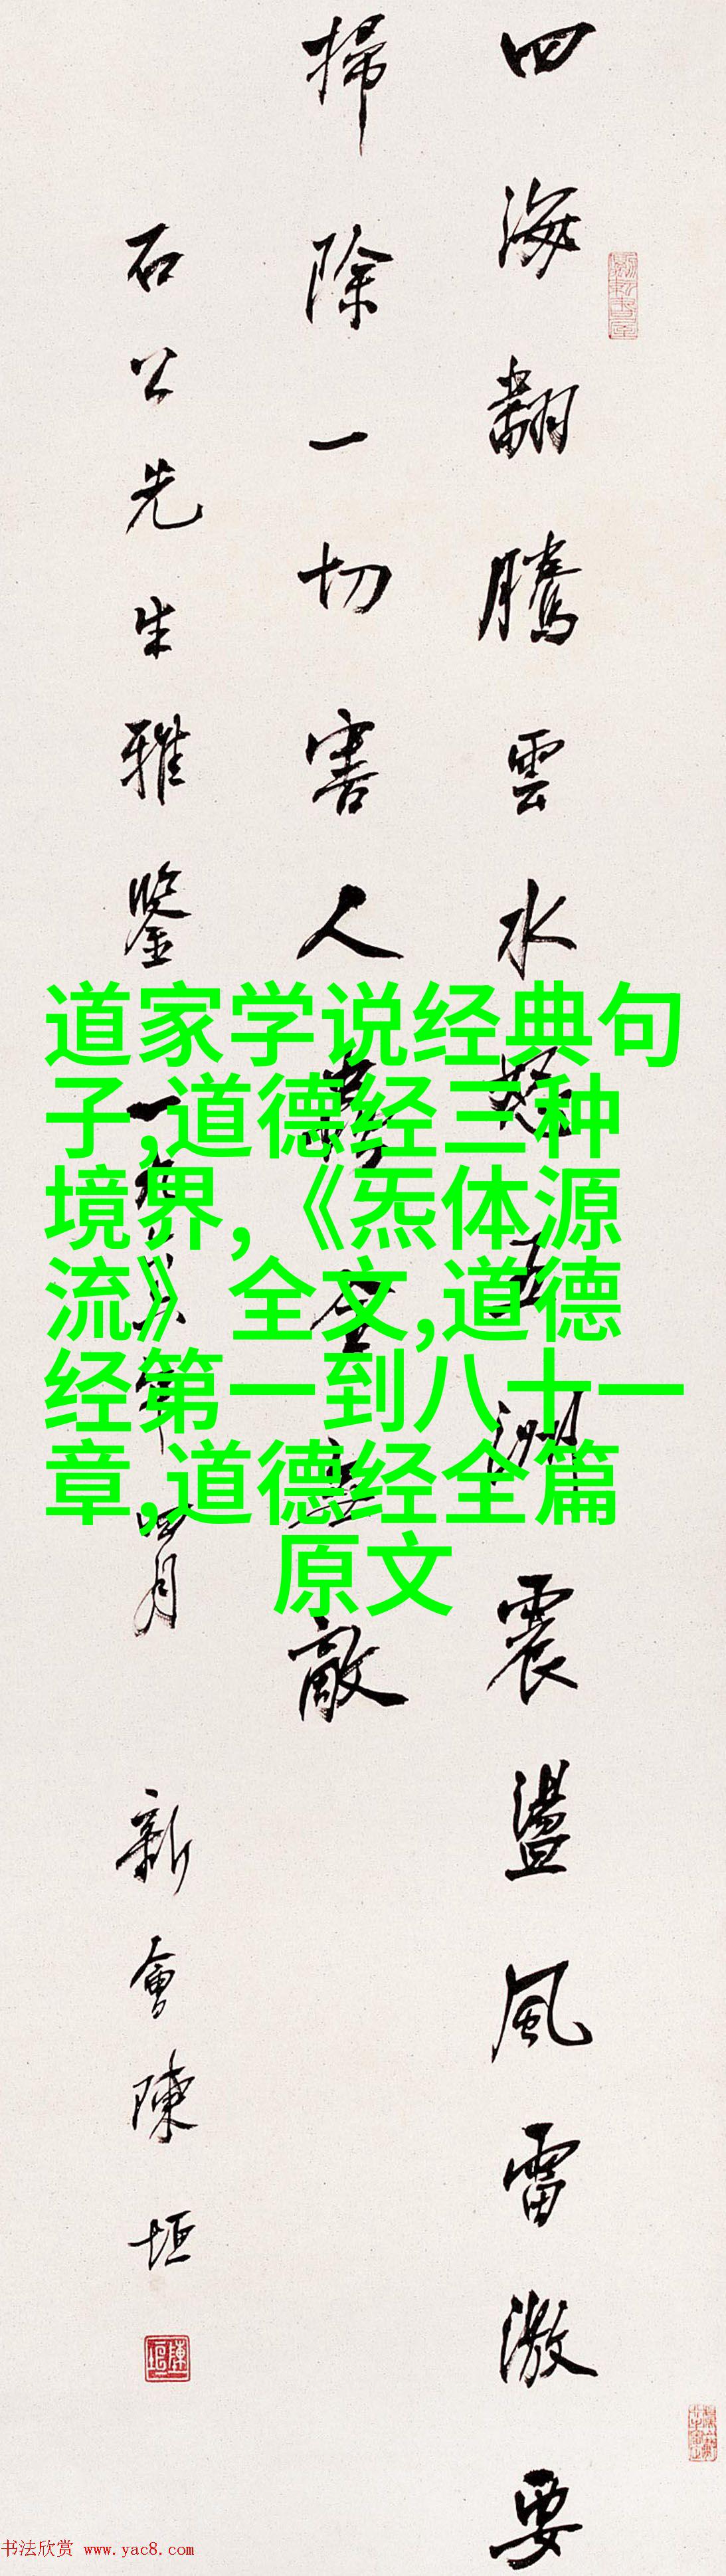 四海翻騰雲水怒五洲震盪風雷激要
掃除一切害人蟲全無敵
石公先生雅鑒 一九六六年四月 新會陳垣
道家学说经典句
子,道德经三种
境界,《炁体源
流》全文,道德
经第一到八十一
章,道德经全篇
原文
陳垣
书法欣赏 www.yac8.com